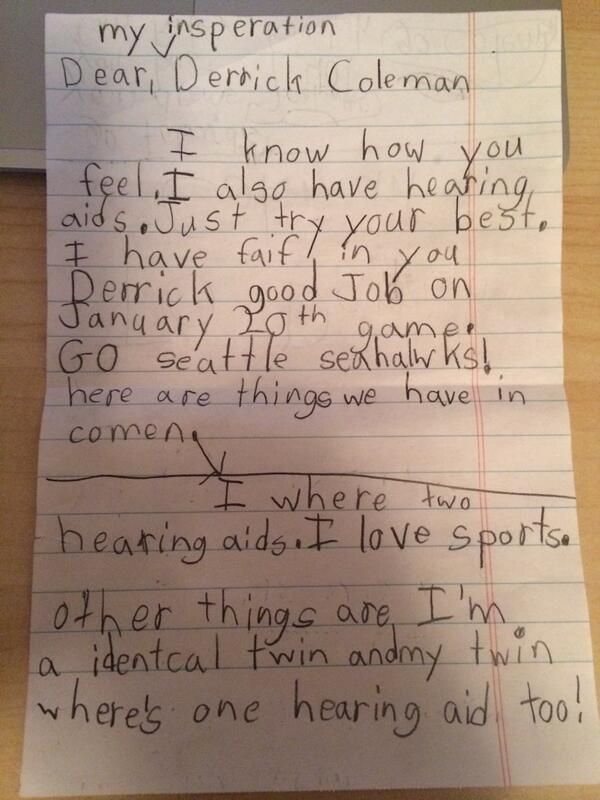 my insperation
Dear, Derrick Coleman
I know how you
feel. I also have hearing
aids. Just try your best.
I have faif in you
Derrick good Job on
January 20th game.
GO seattle seahalwks!
here are things we have in
comen.
I where two
hearing aids. I love sports.
other things are I'm
a identcal twin andmy twin
where's one hearing aid too!